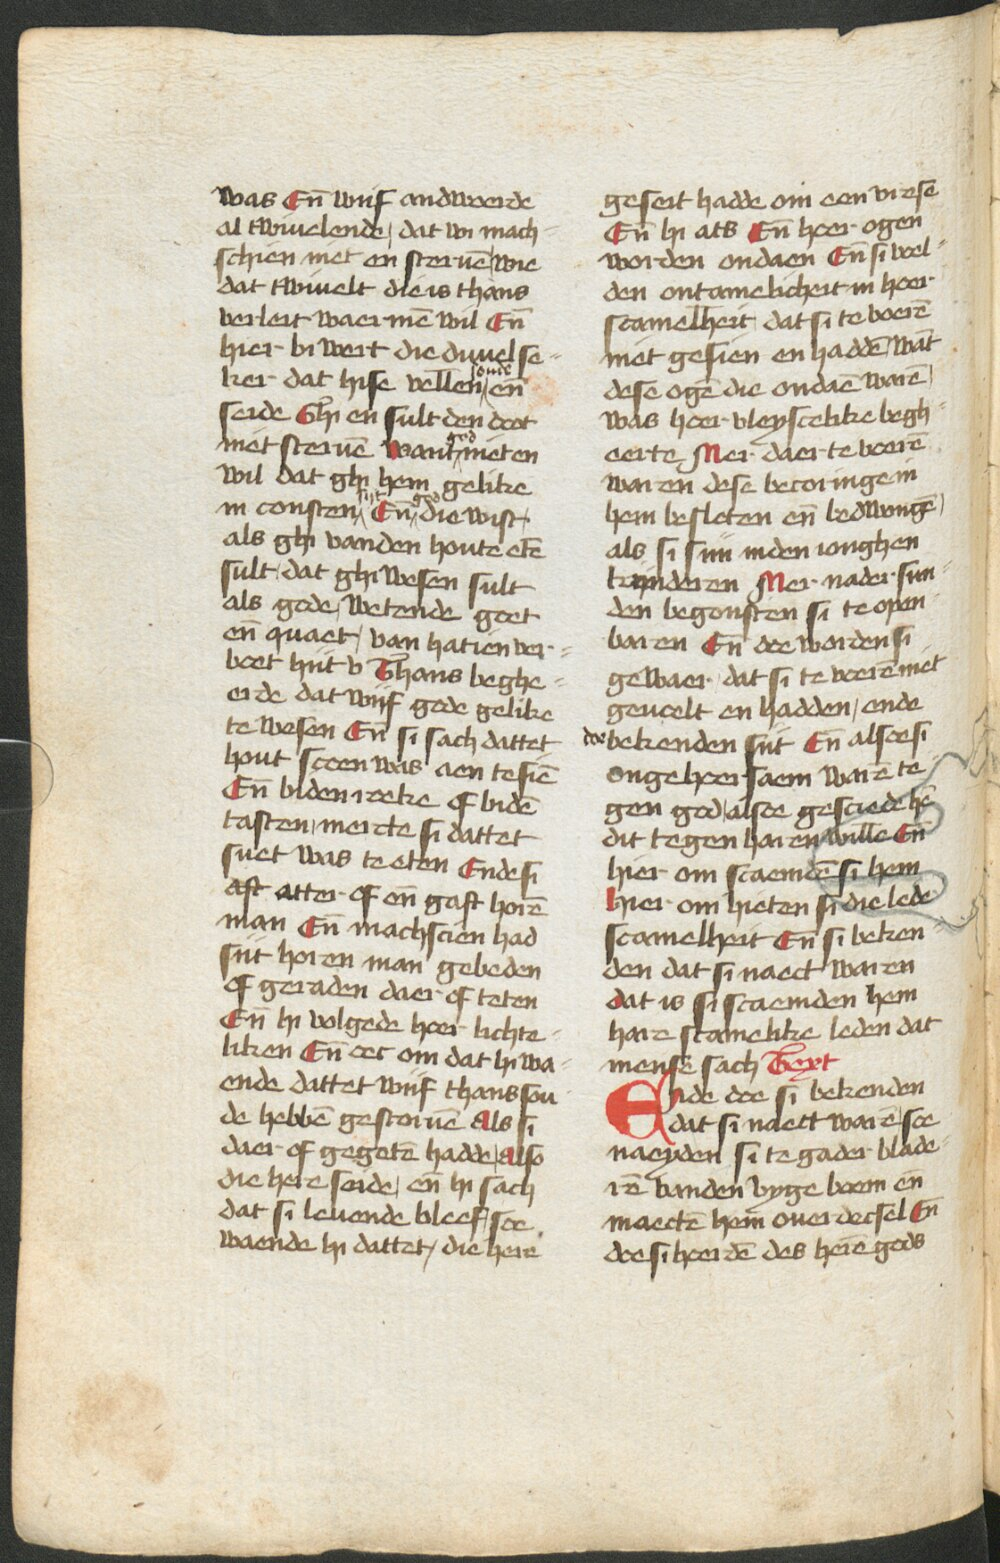 was Eñ wiif andwoerde
al twiuelende, dat wi mach-
schien niet en steruē wie
dat twiuelt die is thans
verleit waer mē wil Eñ
hier bi wert die duuel se-
ker dat hise vellen soude eñ
seide Ghi en sult den doot
niet steruē want god niet en
wil dat ghi hem gelike
in consten siit Eñ god die wist
als ghi vanden houte etē
sult dat ghi wesen sult
als gode, wetende goet
eñ quaet, van hatien ver-
boet hiit v Thans beghe-
erde dat wiif gode gelike
te wesen Eñ si sach dattet
hout scoen was aen te siē
Eñ biden roeke of bidē
tasten mercte si dattet
suet was te eten Ende si
aft atter of eñ gaft horē
man Eñ machscien had
siit horen man gebeden
of geraden daer of teten
Eñ hi volgede hoer lichte-
liken Eñ oec om dat hi wa-
ende dattet wiif thans sou-
de hebbē gestoruē Als si
daer of gegetē hadde, also
die here seide, eñ hi sach
dat si leuende bleef, soe
waende hi dattet, die here
geseit hadde om een vrese
Eñ hi ats Eñ hoer ogen
worden ondaen Eñ si voel-
den ontamelicheit in hoer
scamelheit, dat si te voerē
niet gesien en haddē wāt
dese ogē die ondaē warē,
was hoer vleyscelike begh-
eerte Mer daer te voerē
waren dese becoringe in
hem besloten eñ bedwongē,
als si siin inden ionghen
kinderen Mer nader sun-
den begonsten si te open-
baren Eñ doe worden si
gewaer, dat si te voerē niet
geuoelt en hadden, ende
doe bekenden siit Eñ alsoe si
ongehoersaem warē te-
gen god, alsoe gesciede hē
dit tegen haren wille Eñ
hier om scaemdē si hem
Hier om hieten si die lede
scamelheit Eñ si beken-
den dat si naect waren
dat is si scaemden hem
hare scamelike leden dat
mense sach Text
Ende doe si bekenden
dat si naect warē, soe
naeyden si te gader blade-
rē vanden vyge boem eñ
maectē hem ouerdecsel Eñ
doe si hoerdē des herē gods